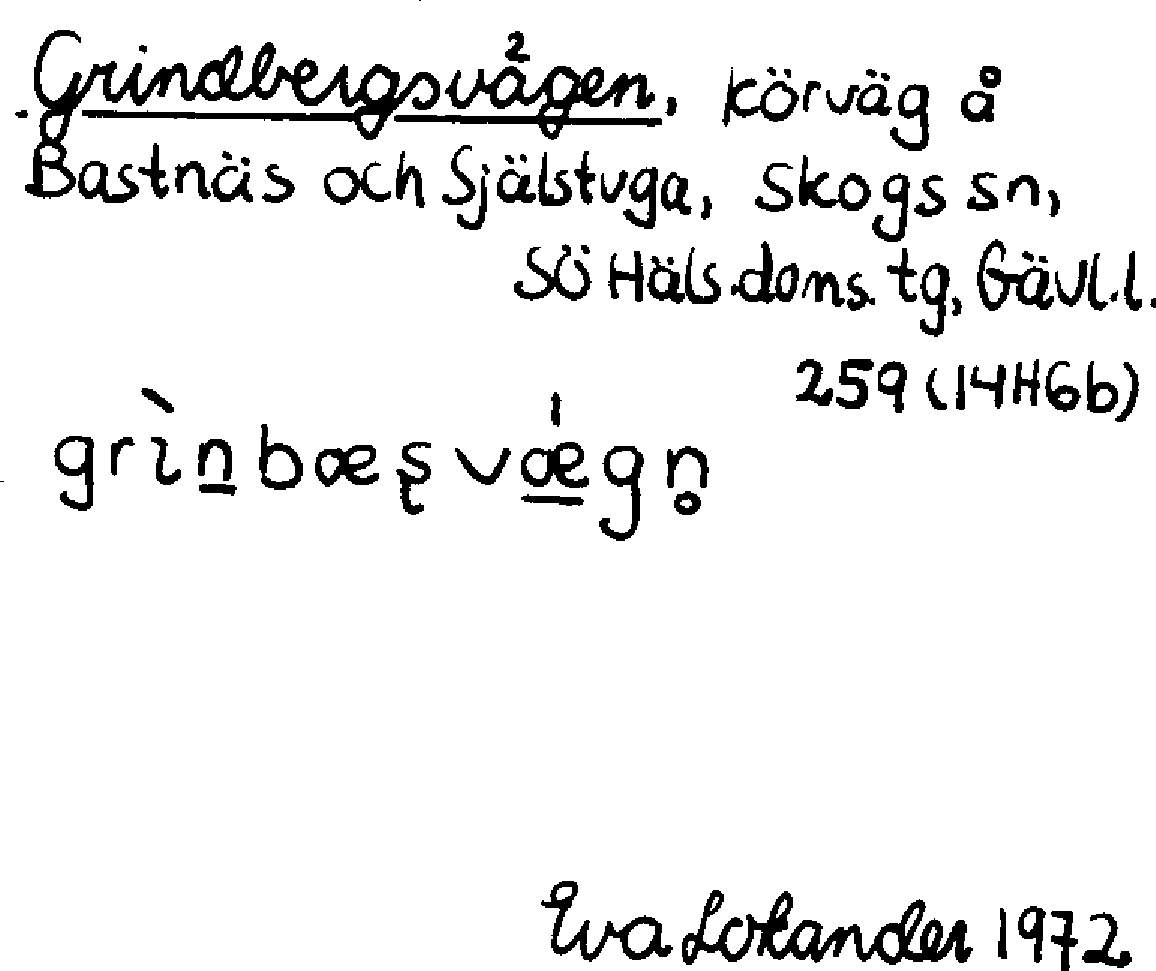 Grindbergsvägen, körväg å
Bastnäs och Själstuga, Skogs sn,
SÖ Häls.doms. tg, Gävl.l.
259 (14H6b)
grìn̲bæʂvǽ̲gn̥
Eva Lokander 1972